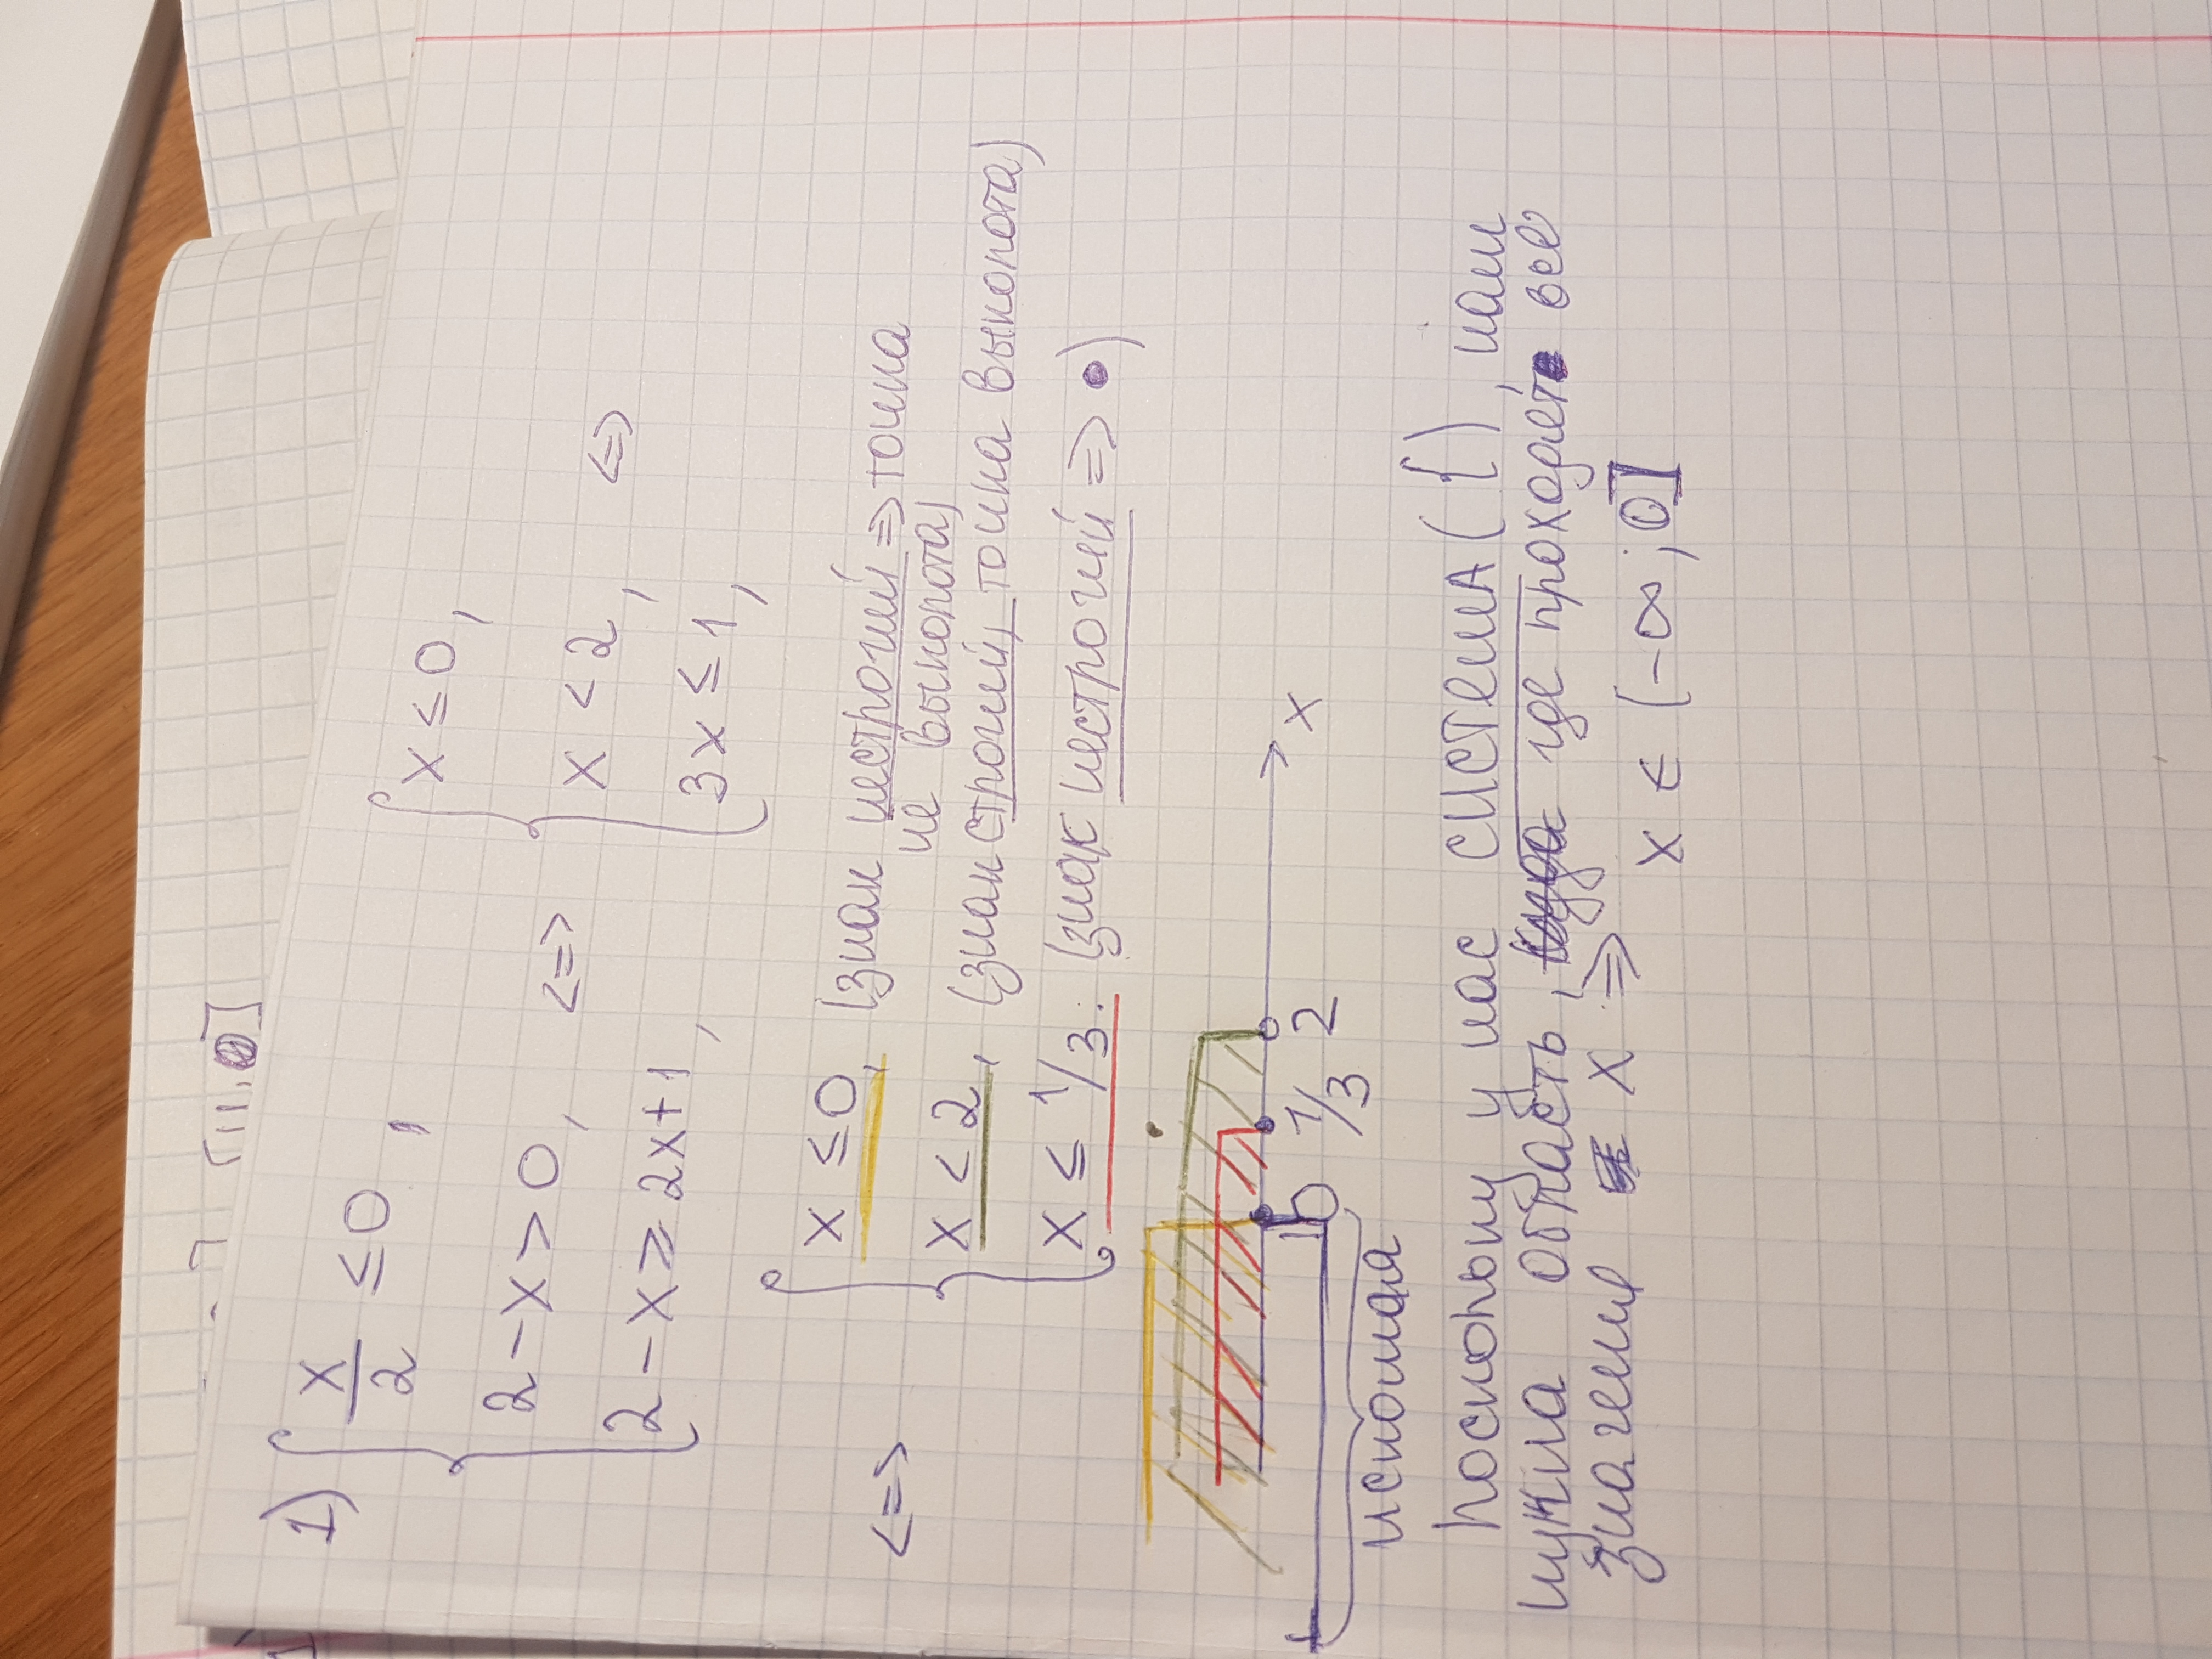 1) { x/2 ≤ 0, <=> { x ≤ 0,
2 - x > 0, x < 2, <=>
2 - x ≥ 2x + 1, 3x ≤ 1,
<=> { x ≤ 0, (знак нестрогий => точка
не выколота)
x < 2, (знак строгий, точка выколота)
x ≤ 1/3. (знак нестрогий => •)
0 1/3 2 x
искомая
поскольку у нас СИСТЕМА ( { ), нам
нужна область, где проходят все
значения x =>
x ∈ (-∞; 0]